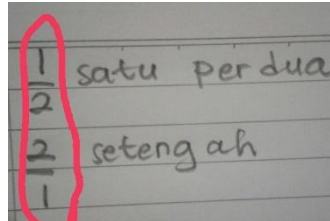 1/2 satu per dua
2/1 setengah